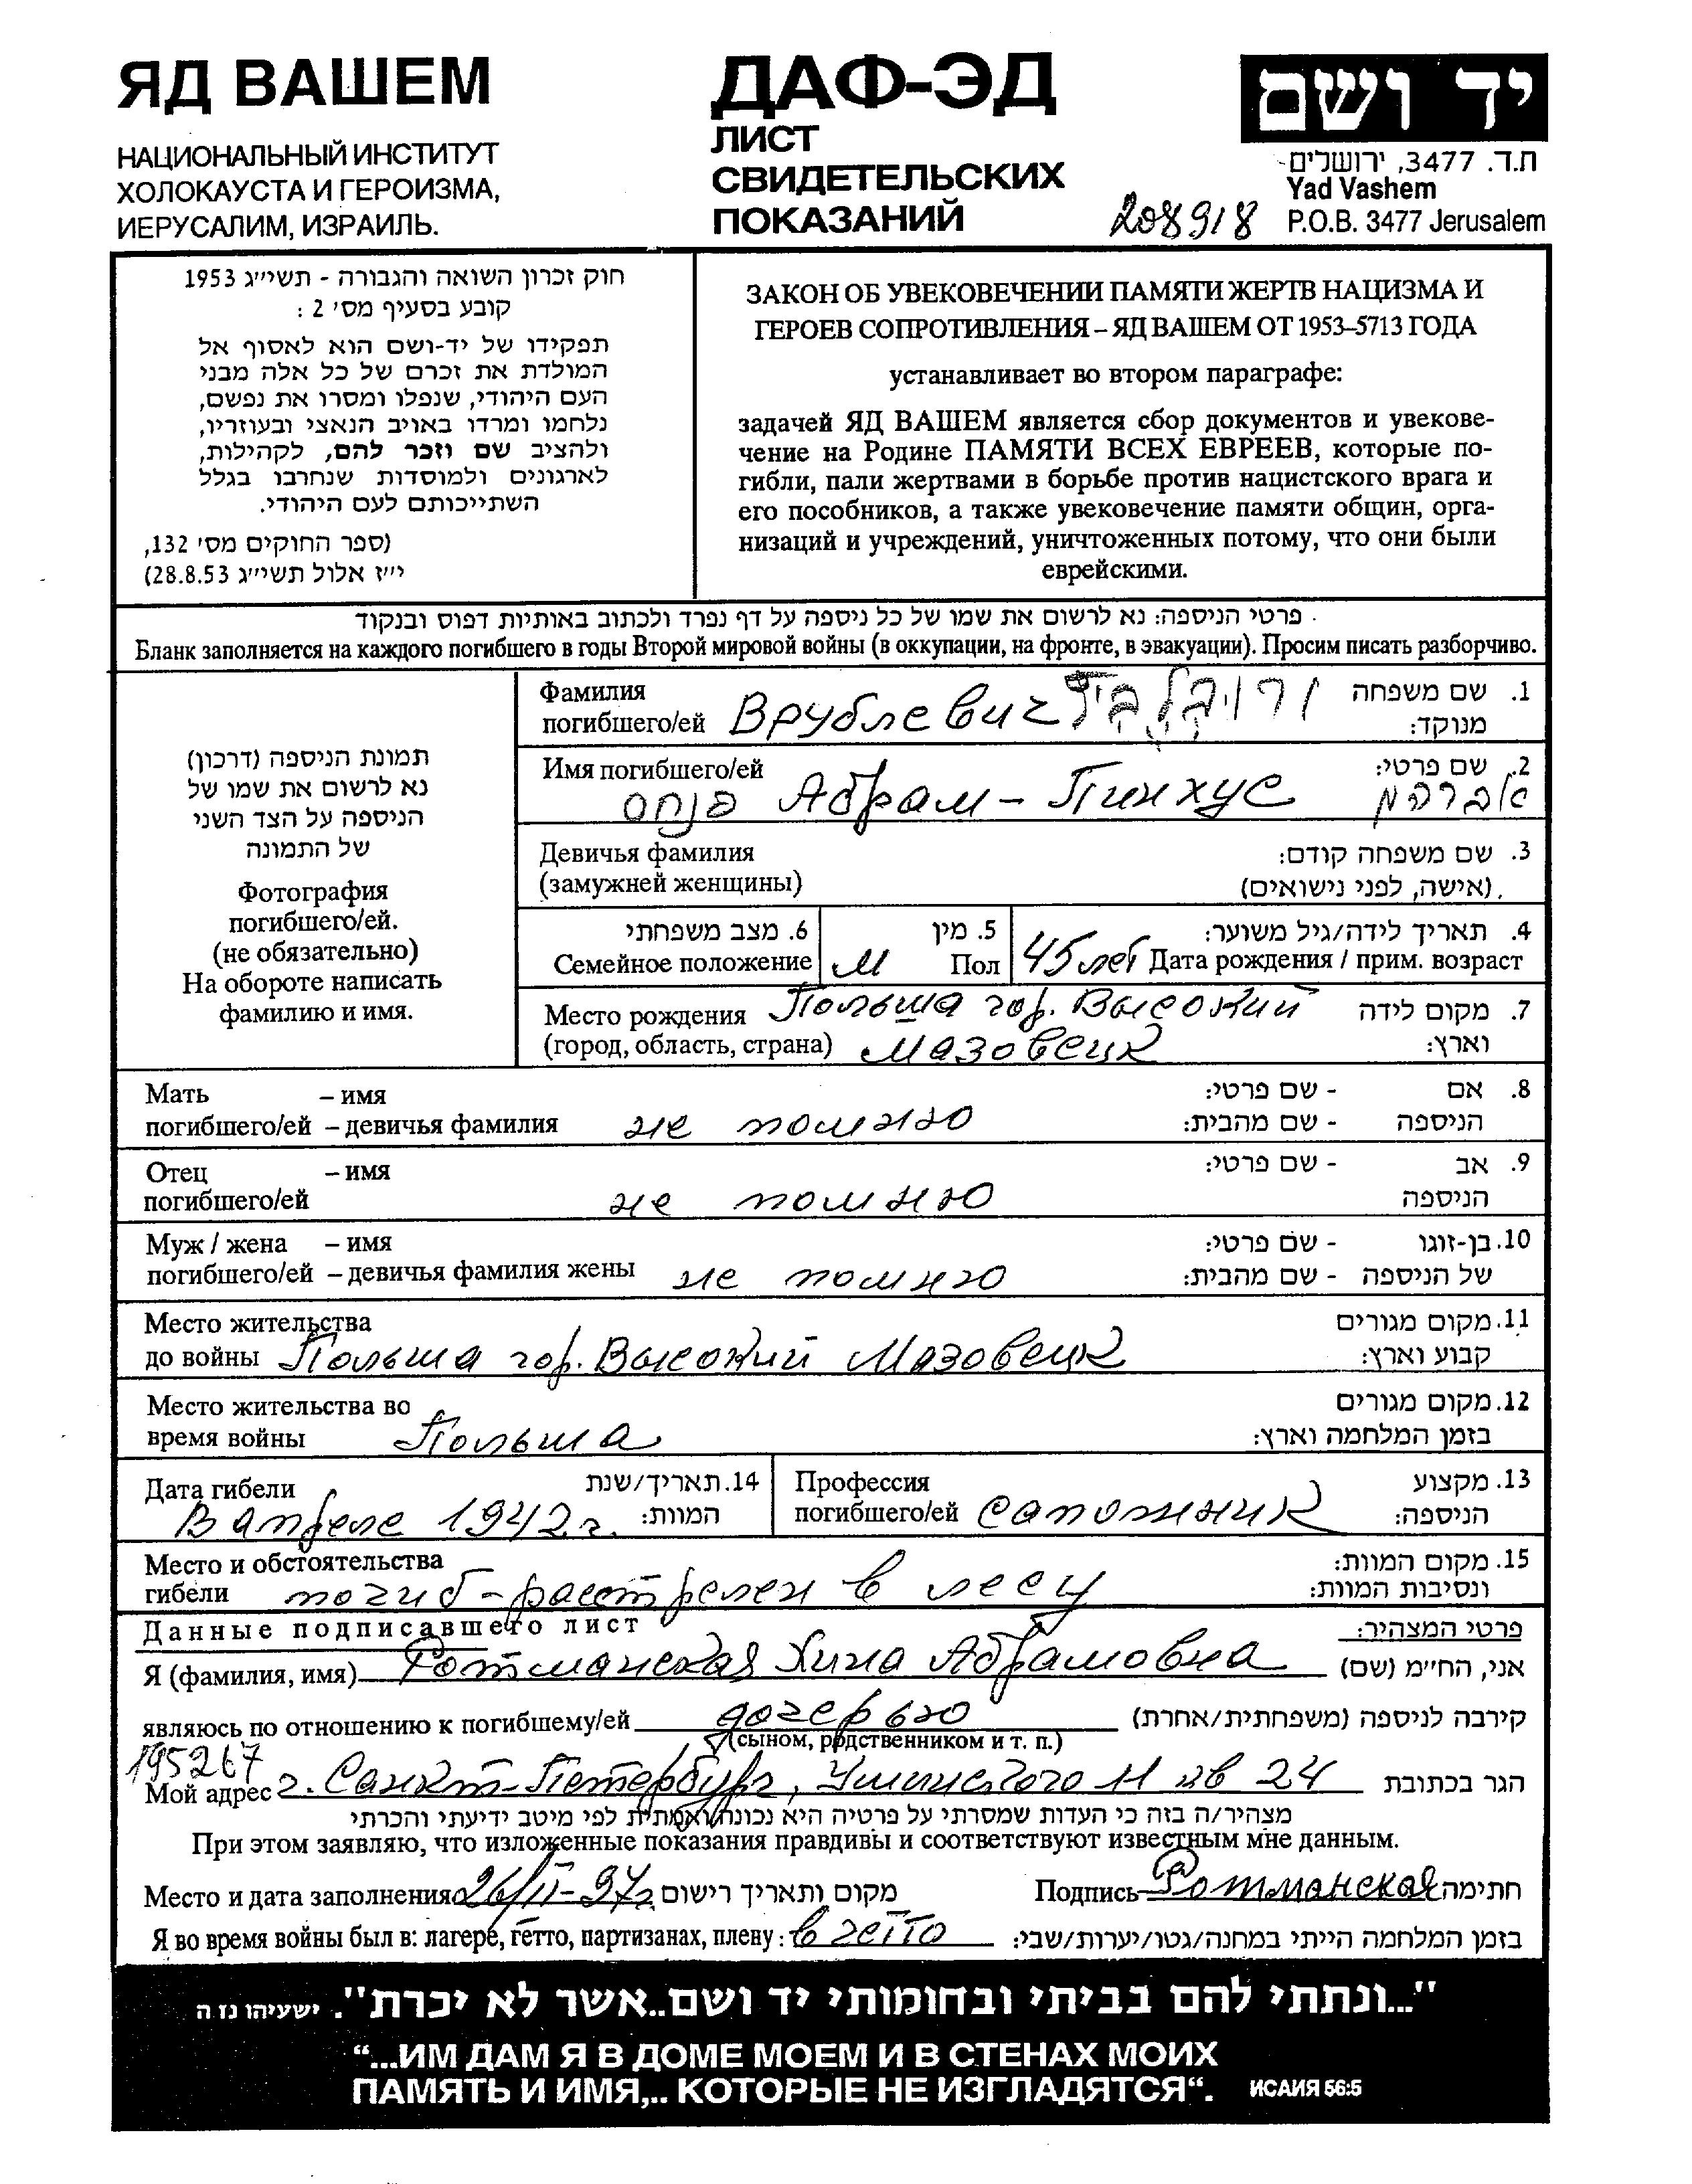 ЯД ВАШЕМ
НАЦИОНАЛЬНЫЙ ИНСТИТУТ
ХОЛОКАУСТА И ГЕРОИЗМА,
ИЕРУСАЛИМ, ИЗРАИЛЬ.
ДАФ-ЭД
ЛИСТ
СВИДЕТЕЛЬСКИХ
ПОКАЗАНИЙ
208918
יד ושם
ת.ד. 3477, ירושלים
Yad Vashem
P.O.B. 3477 Jerusalem
חוק זכרון השואה והגבורה - תשי״ג 1953
קובע בסעיף מס׳ 2 :
תפקידו של יד-ושם הוא לאסוף אל
המולדת את זכרם של כל אלה מבני
העם היהודי, שנפלו ומסרו את נפשם,
נלחמו ומרדו באויב הנאצי ובעוזריו,
ולהציב שם וזכר להם, לקהילות,
לארגונים ולמוסדות שנחרבו בגלל
השתייכותם לעם היהודי.
(ספר החוקים מס׳ 132,
י״ז אלול תשי״ג 28.8.53)
ЗАКОН ОБ УВЕКОВЕЧЕНИИ ПАМЯТИ ЖЕРТВ НАЦИЗМА И
ГЕРОЕВ СОПРОТИВЛЕНИЯ – ЯД ВАШЕМ ОТ 1953–5713 ГОДА
устанавливает во втором параграфе:
задачей ЯД ВАШЕМ является сбор документов и увекове-
чение на Родине ПАМЯТИ ВСЕХ ЕВРЕЕВ, которые по-
гибли, пали жертвами в борьбе против нацистского врага и
его пособников, а также увековечение памяти общин, орга-
низаций и учреждений, уничтоженных потому, что они были
еврейскими.
פרטי הניספה: נא לרשום את שמו של כל ניספה על דף נפרד ולכתוב באותיות דפוס ובנקוד
Бланк заполняется на каждого погибшего в годы Второй мировой войны (в оккупации, на фронте, в эвакуации). Просим писать разборчиво.
תמונת הניספה (דרכון)
נא לרשום את שמו של
הניספה על הצד השני
של התמונה
Фотография
погибшего/ей.
(не обязательно)
На обороте написать
фамилию и имя.
Фамилия 1. שם משפחה
погибшего/ей Врублевич מנוקד:
Имя погибшего/ей 2. שם פרטי:
פנחס Абрам – Пинхус אברהם
Девичья фамилия 3. שם משפחה קודם:
(замужней женщины) (אישה, לפני נישואים)
6. מצב משפחתי 5. מין 4. תאריך לידה/גיל משוער:
Семейное положение М Пол 45 лет Дата рождения / прим. возраст
Место рождения Польша гор. Высокий 7. מקום לידה
(город, область, страна) Мазовецк וארץ:
Мать – имя - שם פרטי: 8. אם
погибшего/ей – девичья фамилия не помню - שם מהבית: הניספה
Отец – имя - שם פרטי: 9. אב
погибшего/ей не помню הניספה
Муж / жена – имя - שם פרטי: 10. בן-זוגו
погибшего/ей – девичья фамилия жены не помню - שם מהבית: של הניספה
Место жительства 11. מקום מגורים
до войны Польша гор. Высокий Мазовецк קבוע וארץ:
Место жительства во 12. מקום מגורים
время войны Польша בזמן המלחמה וארץ:
Дата гибели 14. תאריך/שנת
В апреле 1942 г. המוות:
Профессия 13. מקצוע
погибшего/ей сапожник הניספה:
Место и обстоятельства 15. מקום המוות:
гибели погиб – расстрелен в лесу ונסיבות המוות:
Данные подписавшего лист פרטי המצהיר:
Я (фамилия, имя) Ротманская Хина Абрамовна אני, הח״מ (שם)
являюсь по отношению к погибшему/ей дочерью קירבה לניספה (משפחתית/אחרת)
(сыном, родственником и т. п.)
195267
Мой адрес г. Санкт-Петербург, 11 кв 24 הגר בכתובת
מצהיר/ה בזה כי העדות שמסרתי על פרטיה היא נכונה ואמתית לפי מיטב ידיעתי והכרתי
При этом заявляю, что изложенные показания правдивы и соответствуют известным мне данным.
Место и дата заполнения 26/II–97г. מקום ותאריך רישום Подпись Ротманская חתימה
Я во время войны был в: лагере, гетто, партизанах, плену: в гетто בזמן המלחמה הייתי במחנה/גטו/יערות/שבי:
"...ונתתי להם בביתי ובחומותי יד ושם..אשר לא יכרת". ישעיהו נז ה
“...ИМ ДАМ Я В ДОМЕ МОЕМ И В СТЕНАХ МОИХ
ПАМЯТЬ И ИМЯ,.. КОТОРЫЕ НЕ ИЗГЛАДЯТСЯ“. ИСАИЯ 56:5